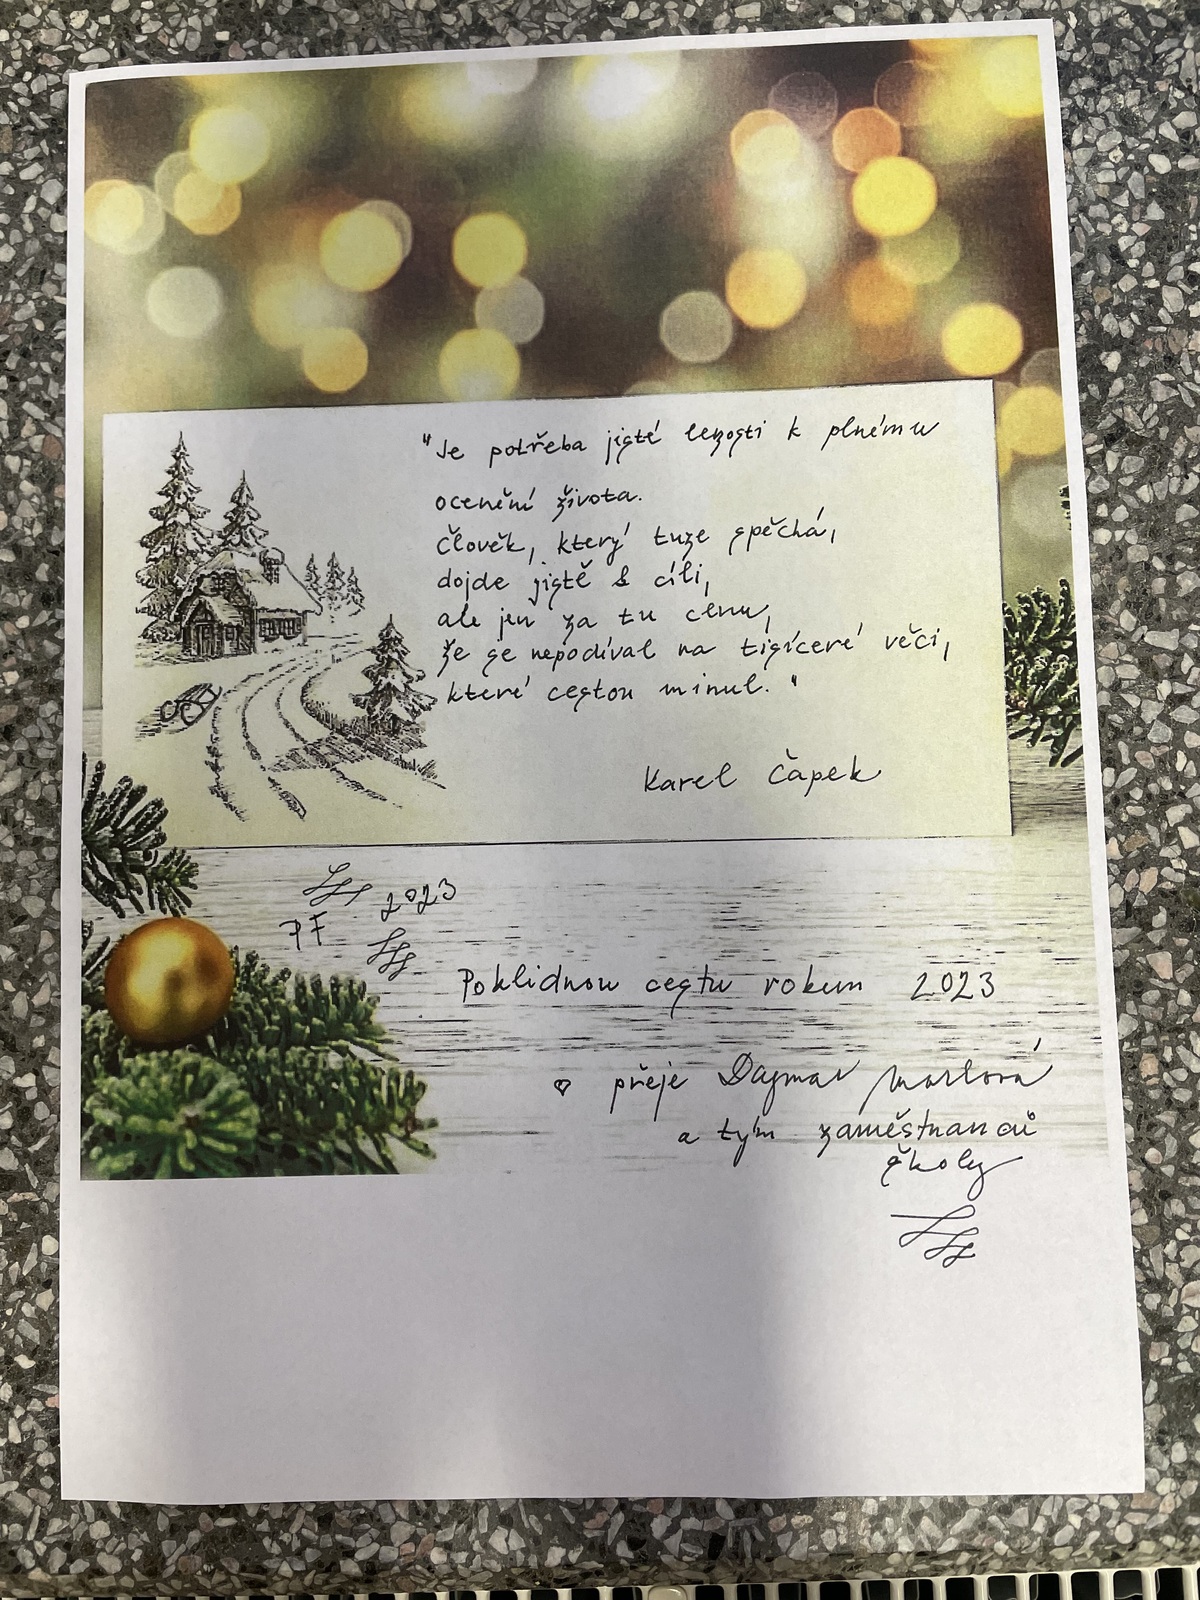 "Je potřeba jisté lenosti k plnému
ocenění života.
Člověk, který tuze spěchá,
dojde jistě k cíli,
ale jen za tu cenu,
že se nepodíval na tisíceré věci,
které cestou minul."
Karel Čapek
PF 2023
Poklidnou cestu rokem 2023
přeje Dagmar
a tým zaměstnanců
školy